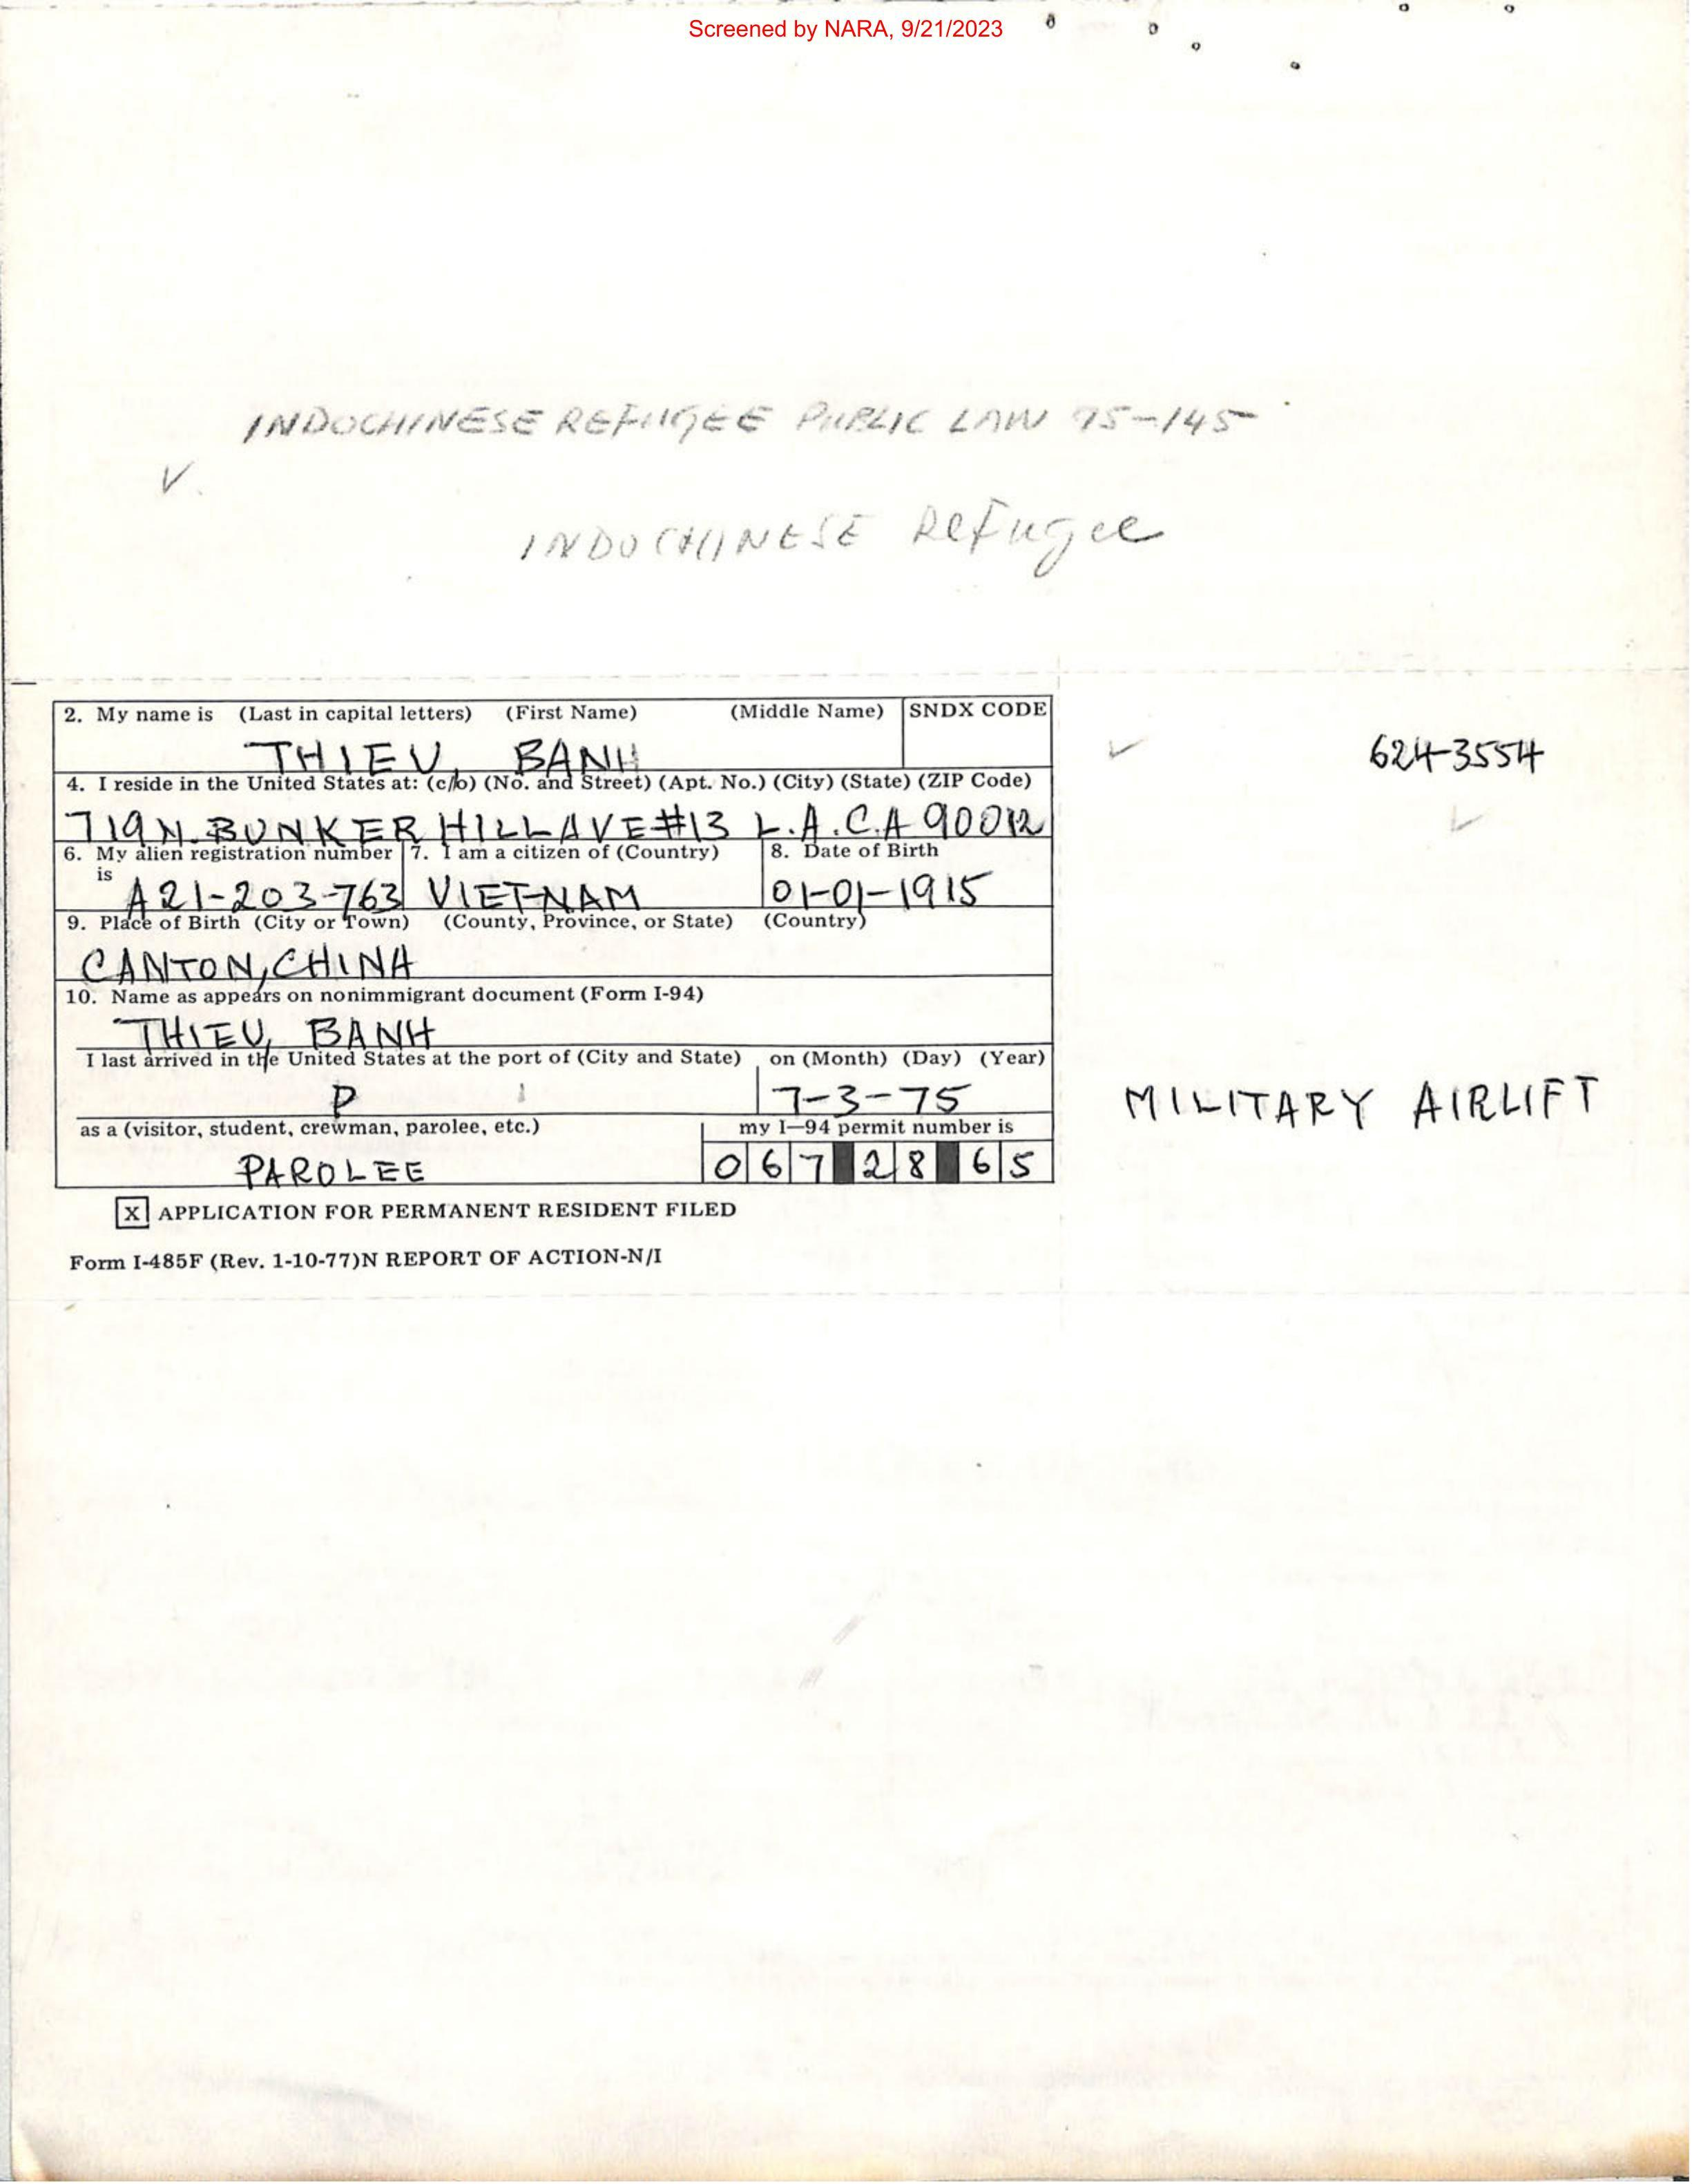 Screened by NARA, 9/21/2023
INDOCHINESE REFUGEE PUBLIC LAW 95-145
INDOCHINESE Refugee
2. My name is (Last in capital letters) (First Name) (Middle Name) SNDX CODE
THIEU, BANH
624-3554
4. I reside in the United States at: (c/o) (No. and Street) (Apt. No.) (City) (State) (ZIP Code)
719 N. BUNKER HILL AVE #13 L.A. C.A 90012
6. My alien registration number is 7. I am a citizen of (Country) 8. Date of Birth
A21-203-763 VIET-NAM 01-01-1915
9. Place of Birth (City or Town) (County, Province, or State) (Country)
CANTON, CHINA
10. Name as appears on nonimmigrant document (Form I-94)
THIEU, BANH
I last arrived in the United States at the port of (City and State) on (Month) (Day) (Year)
P 7-3-75
MILITARY AIRLIFT
as a (visitor, student, crewman, parolee, etc.) my I-94 permit number is
PAROLEE 067 28 65
X APPLICATION FOR PERMANENT RESIDENT FILED
Form I-485F (Rev. 1-10-77)N REPORT OF ACTION-N/I